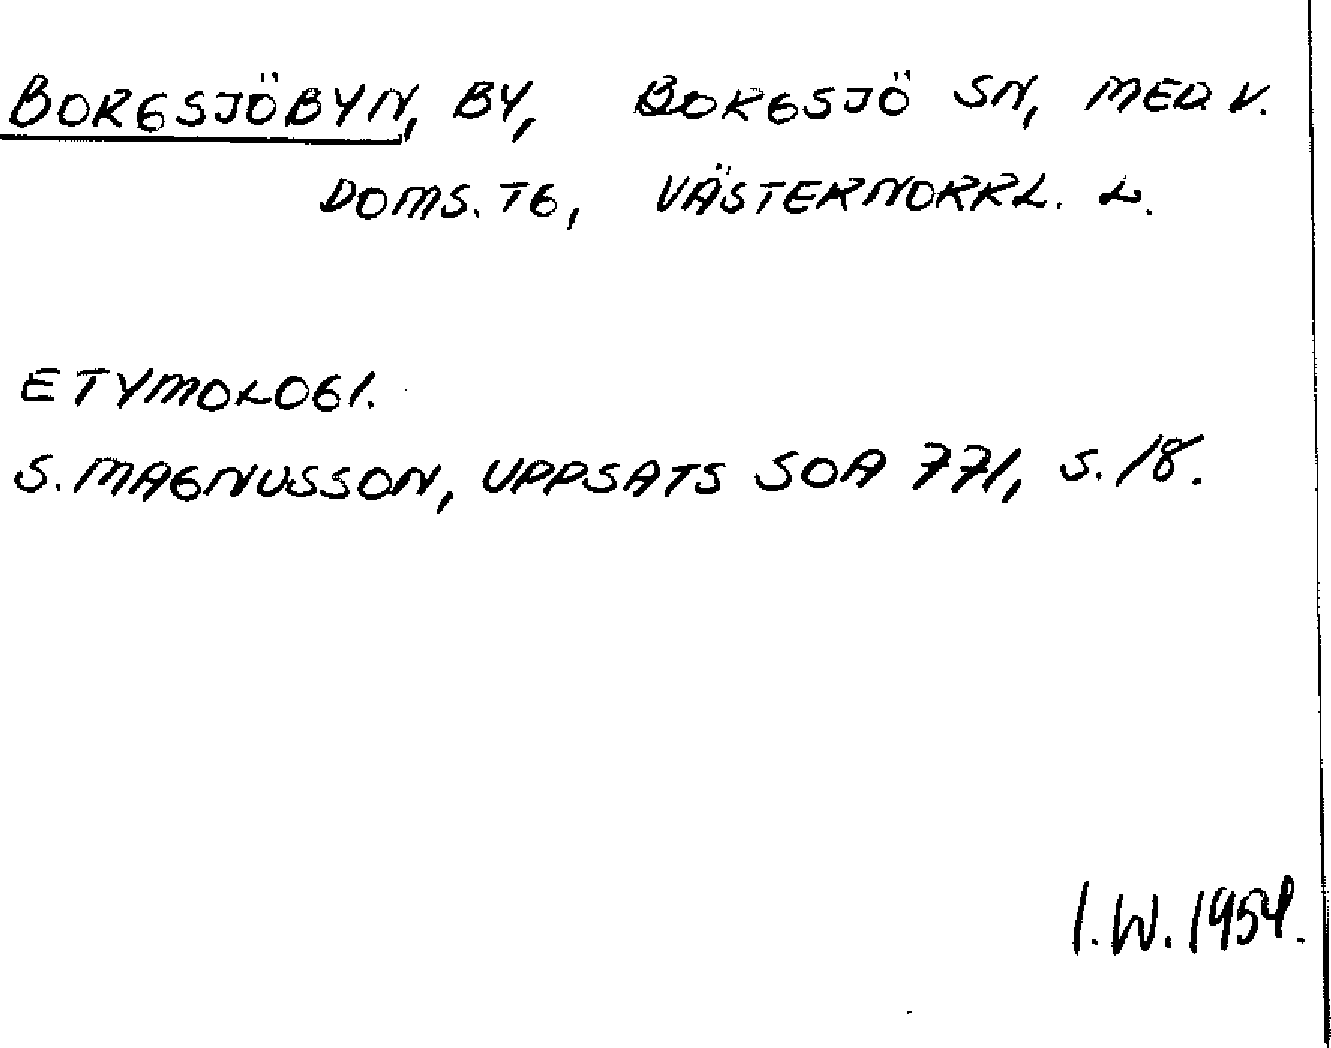 BORGSJÖBYN, BY, BORGSJÖ SN, MED. V.
DOMS. TG, VÄSTERNORRL. L.
ETYMOLOGI.
S. MAGNUSSON, UPPSATS SOA 771, S. 18.
I. W. 1954.